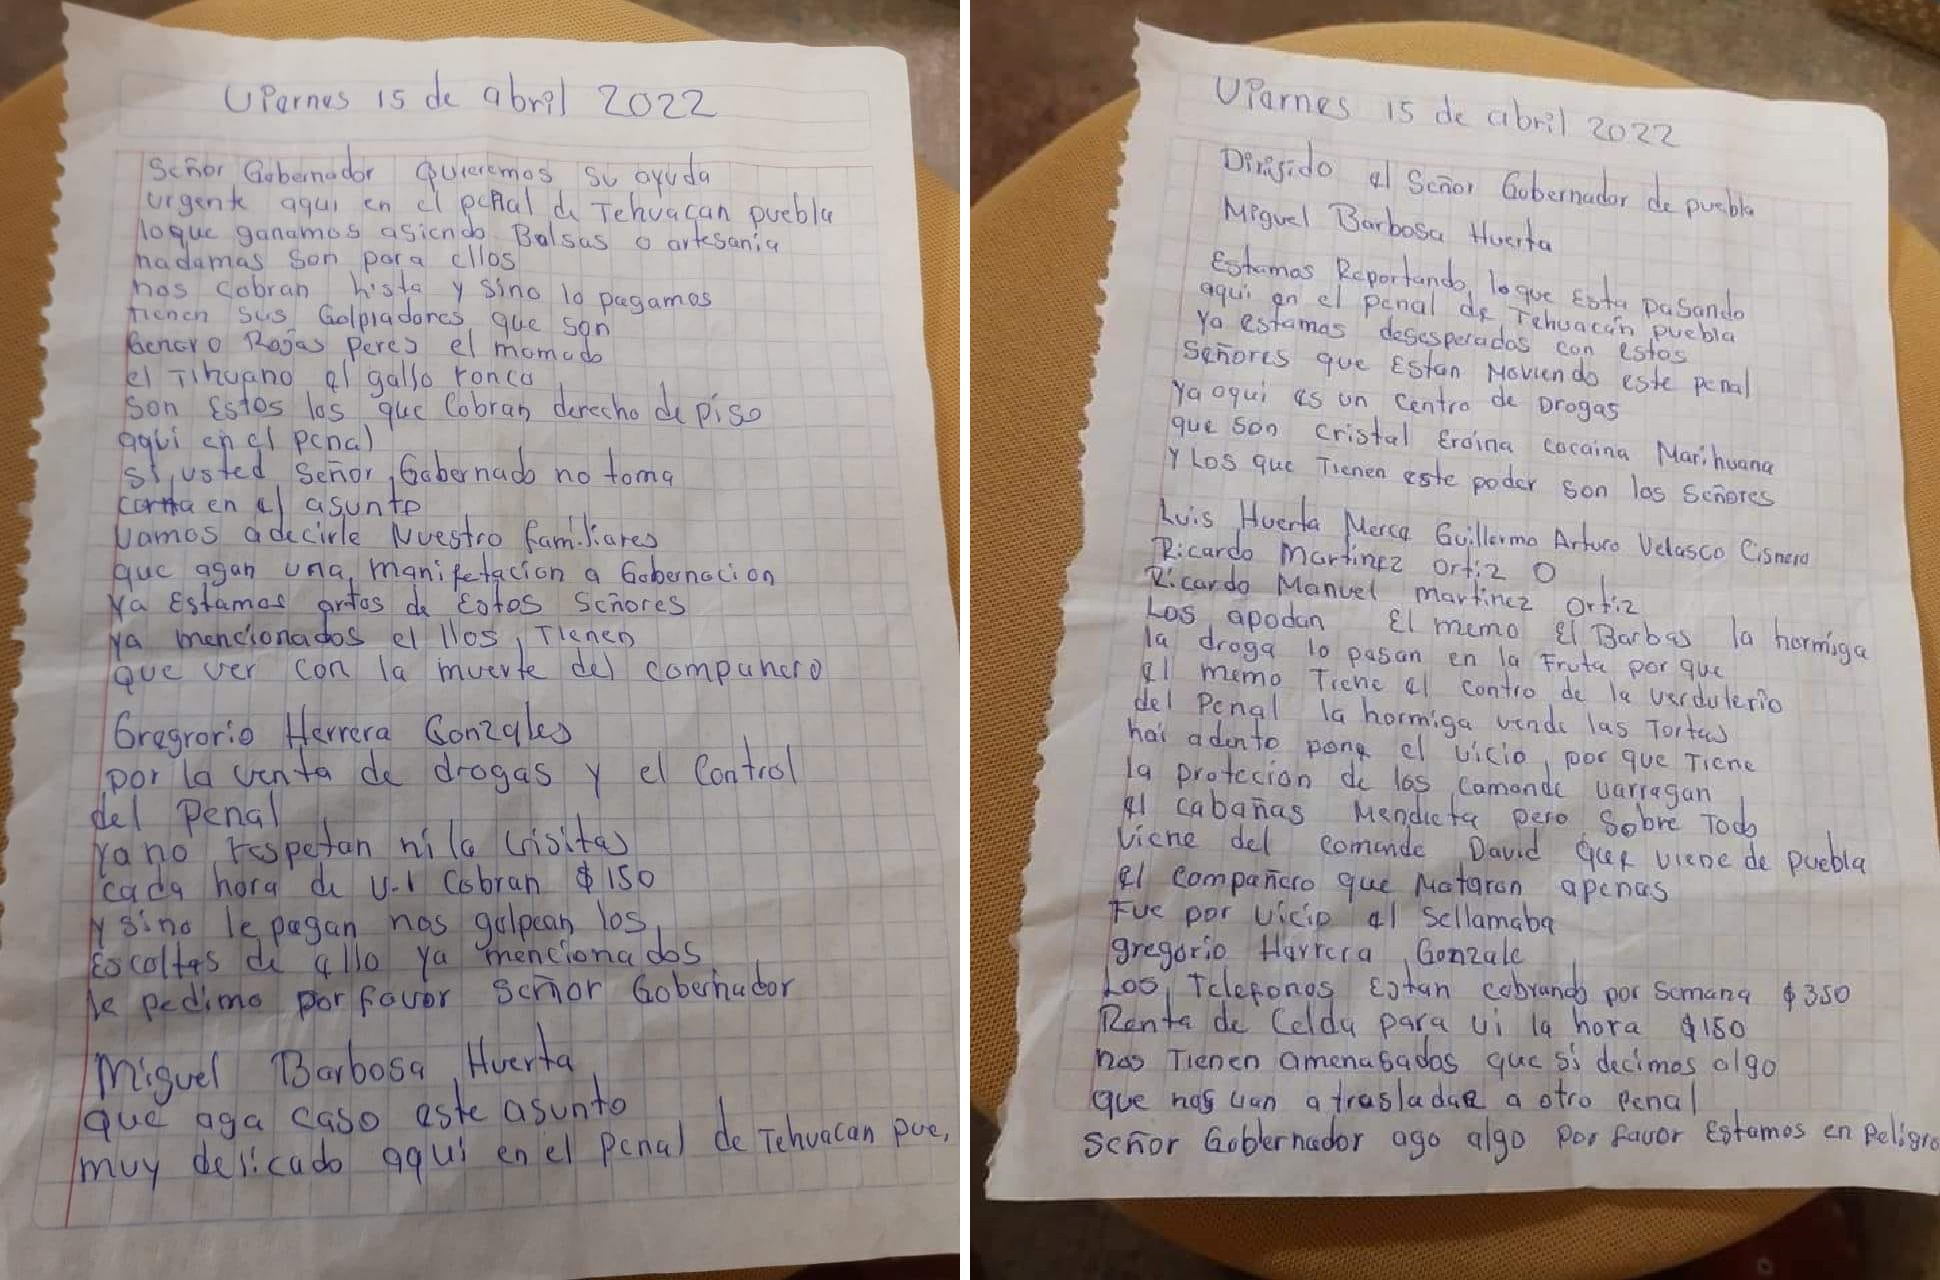 Viernes 15 de abril 2022
Señor Gobernador Quieremos su ayuda
urgente aqui en el penal de Tehuacan puebla
loque ganamos asiendo Bolsas o artesania
nadamas son para ellos
nos cobran lista y sino lo pagamos
tienen sus Golpiadores que son
Genaro Rojas Peres el momado
el Tihuano el gallo ronco
son Estos los que Cobran derecho de piso
aqui en el penal
si usted señor Gobernado no toma
carta en el asunto
vamos adecirle Nuestro familiares
que agan una manifetacion a Gobernacion
Ya Estamos artos de Estos señores
ya mencionados el llos Tienen
que ver con la muerte del compañero
Gregrorio Herrera Gonzales
por la venta de drogas y el Control
del Penal
Ya no respetan ni la visitas
cada hora de V-I Cobran $150
y sino le pagan nos golpean los
Escoltas de ello ya mencionados
le pedimo por favor señor Gobernador
Miguel Barbosa Huerta
que aga caso este asunto
muy delicado aqui en el Penal de Tehuacan pue,
Viernes 15 de abril 2022
Dirigido al Señor Gobernador de puebla
Miguel Barbosa Huerta
Estamos Reportando loque Esta pasando
aqui en el penal de Tehuacán puebla
Ya estamos desesperados con estos
señores que Estan Moviendo este penal
Ya aqui es un centro de Drogas
que son cristal Eroina cocaina Marihuana
Y Los que Tienen este poder son los Señores
Luis Huerta Merca Guillermo Arturo Velasco Cisnero
Ricardo Martinez Ortiz O
Ricardo Manuel martinez Ortiz
Los apodan El memo El Barbas la hormiga
la droga lo pasan en la Fruta por que
el memo Tiene el contro de la verduleria
del Penal la hormiga vende las Tortas
hai adento pone el vicio, por que Tiene
la protecion de los Comande Varragan
el cabañas Mendieta pero sobre Todo
viene del comande David quee viene de puebla
el compañero que Mataron apenas
Fue por vicio el sellamaba
gregorio Harrera Gonzale
Los Telefonos Estan cobrando por semana $350
Renta de Celda para vi la hora $150
nos Tienen amenasados que si decimos algo
que nos van a trasladar a otro Penal
señor Goblernador ago algo por favor Estamos en Peligro